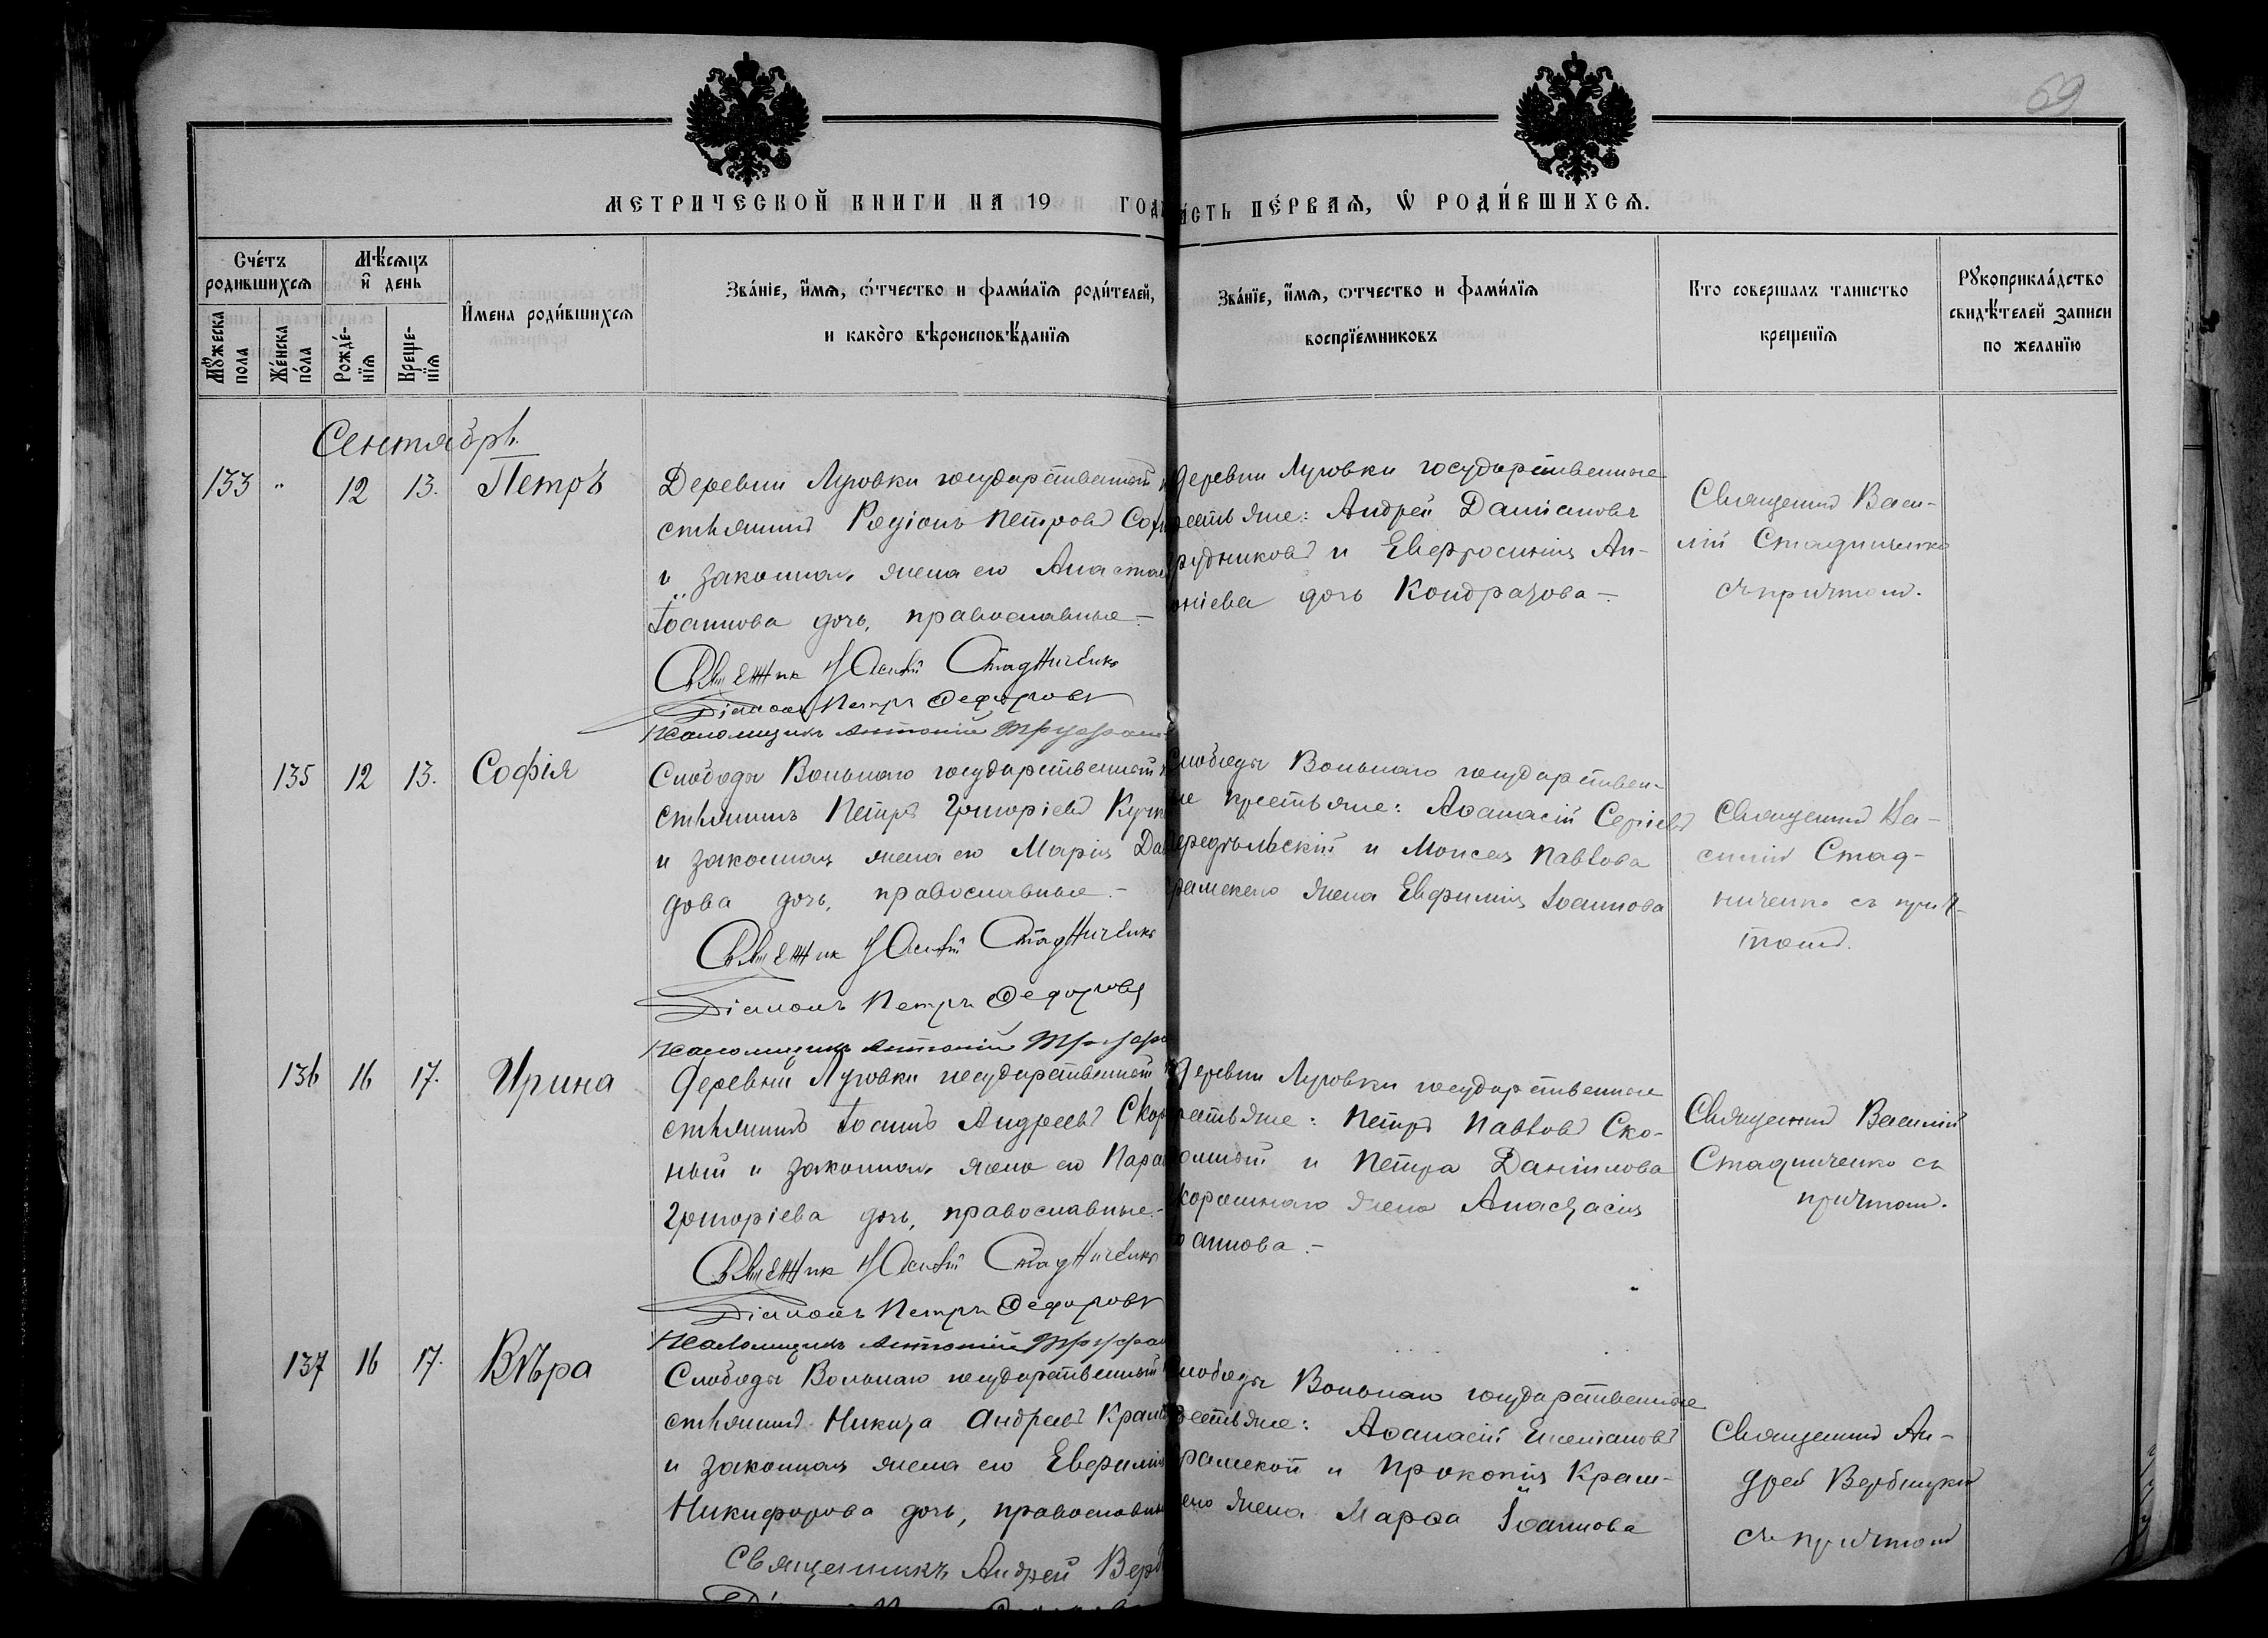 69
МЕТРИЧЕСКОЙ КНИГИ НА 19 ГОД
ИСТЬ ПЕ́РВАЯ, Ѿ РОДИ́ВШИХСЯ.
Сче́тъ родившихсѧ
Мꙋ́жеска пола
Же́нска по́ла
Мѣ́сѧцъ и҆ день
Рожде́-нїѧ
Креще-нїѧ
И҆мена роди́вшихсѧ
Зва́нїе, и҆́мѧ, ѻ҆́тчество и фами́лїѧ роди́телей,
и како́го вѣроисповѣ́данїѧ
Зва́нїе, и҆́мѧ, ѻтчество и фами́лїѧ
воспрїе́мниковъ
Кто совершалъ таинство
креще́нїѧ
Рꙋкоприкла́дство
свидѣ́телей записи
по желанїю
Сентябрь
133 " 12 13. Петръ
Деревни Луговки государственный
стьянинъ Родіонъ Петровъ Соф
и законная жена его Анастас
Іоаннова дочь, православные.-
Священник Василій Стадниченко
Діаконъ Петръ Федоровъ
Псаломщикъ Антоній
Деревни Луговки государственные
рестьяне: Андрей Даміановъ
рудниковъ и Евфросинія Ан-
оніева дочь Кондратова -
Священникъ Васи-
лій Стадниченко
съ причтомъ.
135 12 13. Софія
Слободы Вольнаго государственный к
стьянинъ Петръ Григоріевъ
и законная жена его Марія Дав
дова дочь, православные.-
Священник Василій Стадниченко
Діаконъ Петръ Федоровъ
Псаломщикъ Антоній
Слободы Вольнаго государствен-
ые крестьяне: Аѳанасій Сергіевъ
Передѣльскій и Моисея Павлова
рамскаго жена Евфимія Іоаннова
Священникъ Ва-
силій Стад-
ниченко съ прич-
томъ.
136 16 17. Ирина
Деревни Луговки государственный
стьянинъ Іоаннъ Андреевъ Скор
ный и законная жена его Парас
Григоріева дочь, православные.-
Священник Василій Стадниченко
Діаконъ Петръ Федоровъ
Псаломщикъ Антоній
Деревни Луговки государственные
рестьяне: Петръ Павловъ Ско-
и Петра Даніилова
жена Анастасія
оаннова.-
Священникъ Василій
Стадниченко съ
причтомъ.
137 16 17. Вѣра
Слободы Вольнаго государственный
стьянинъ Никита Андреевъ Крам
и законная жена его Евфимія
Никифорова дочь, православны
Священникъ Андрей Верб
Слободы Вольнаго государственные
рестьяне: Аѳанасій
рамской и Прокопія Крам-
его жена Марѳа Іоаннова
Священникъ Ан-
дрей Вербицкій
съ причтомъ